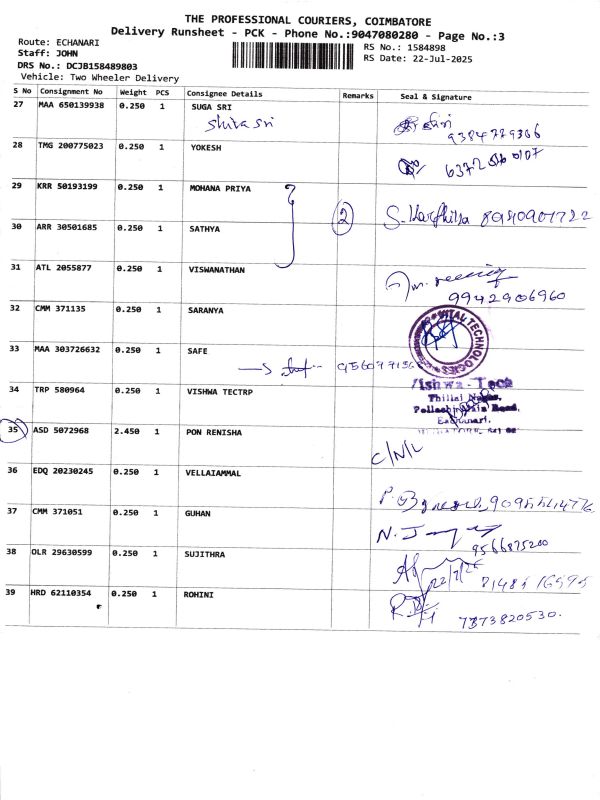 THE PROFESSIONAL COURIERS, COIMBATORE
Delivery Runsheet - PCK - Phone No.:9047080280 - Page No.:3
Route: ECHANARI
Staff: JOHN
DRS No.: DCJB158489803
Vehicle: Two Wheeler Delivery
RS No.: 1584898
RS Date: 22-Jul-2025
S No Consignment No Weight PCS Consignee Details Remarks Seal & Signature
27 MAA 650139938 0.250 1 SUGA SRI
Shiva sri
9384729306
28 TMG 200775023 0.250 1 YOKESH
29 KRR 50193199 0.250 1 MOHANA PRIYA
2
30 ARR 30501685 0.250 1 SATHYA
31 ATL 2055877 0.250 1 VISWANATHAN
9942906960
32 CMM 371135 0.250 1 SARANYA
33 MAA 303726632 0.250 1 SAFE
34 TRP 580964 0.250 1 VISHWA TECTRP
VITAL TECHNOLOGIES
Vishwa - Tech
Thillai Nagar,
Pollachi Main Road,
Eachanari,
35 ASD 5072968 2.450 1 PON RENISHA
C/N/L
36 EDQ 20230245 0.250 1 VELLAIAMMAL
37 CMM 371051 0.250 1 GUHAN
9566875200
38 OLR 29630599 0.250 1 SUJITHRA
39 HRD 62110354 0.250 1 ROHINI
7373820530.